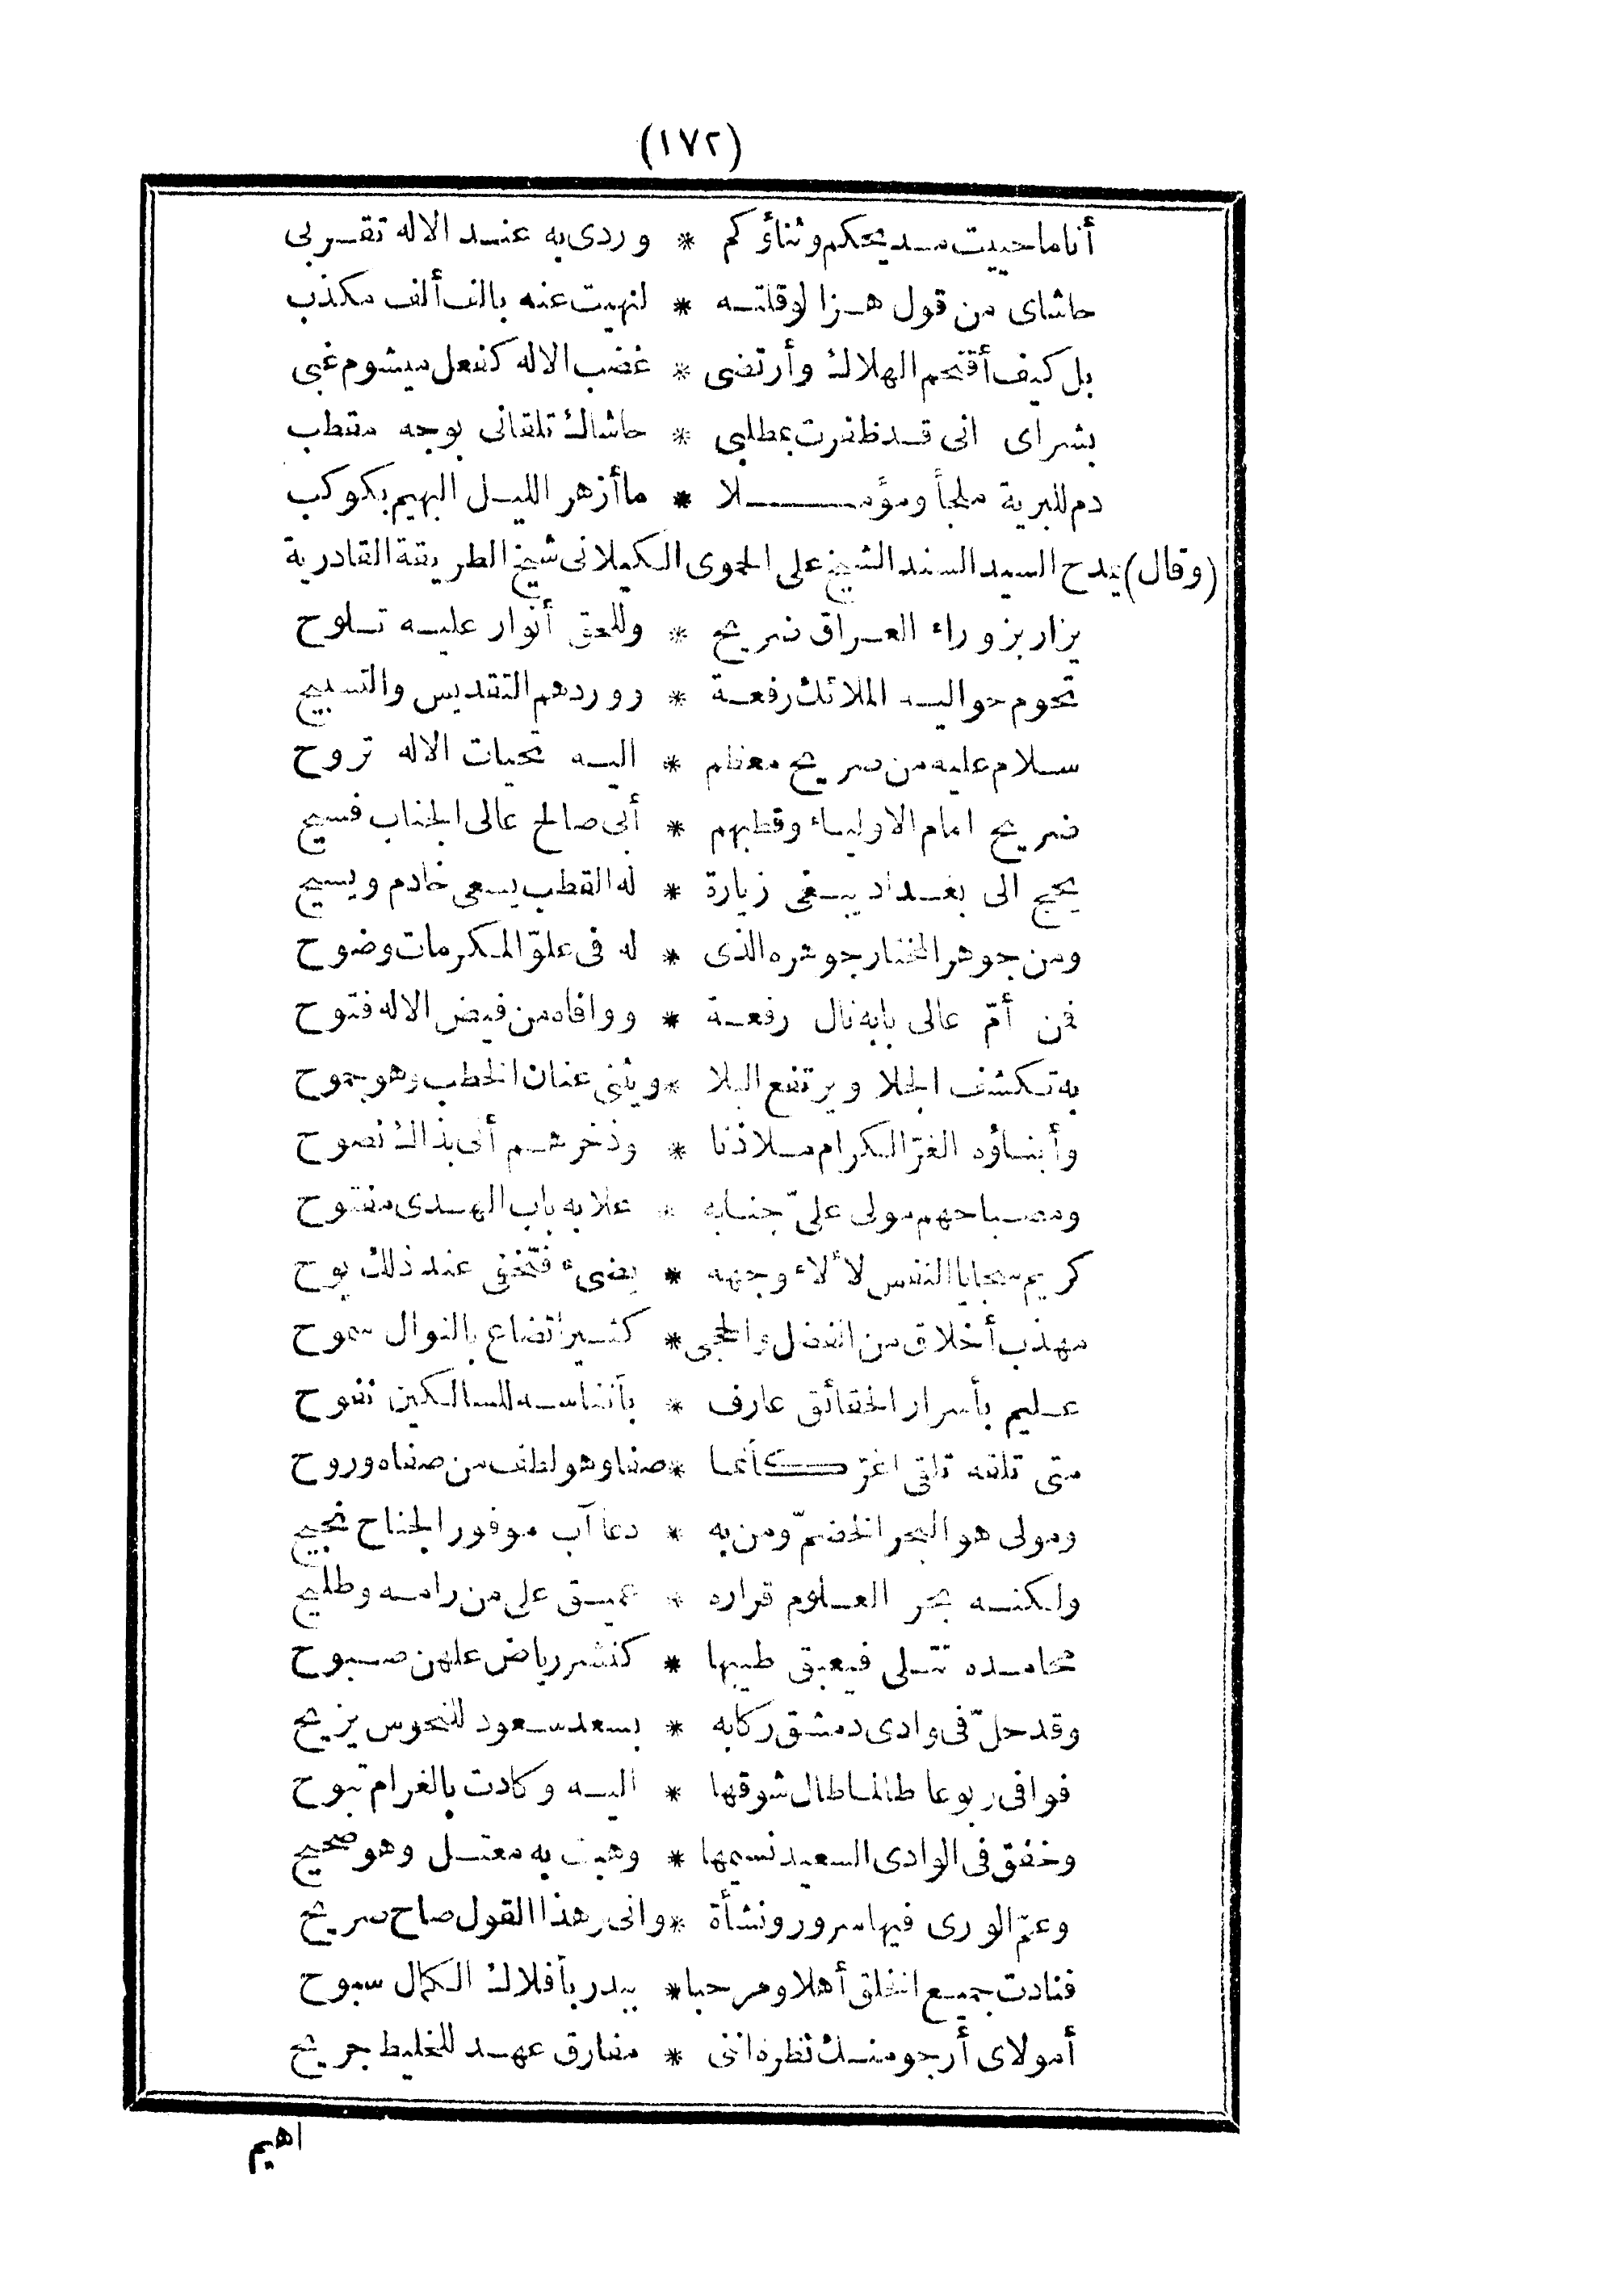 (١٧٢)
أناما حييت مديحكم وثناؤكم * وردى به عند الاله تقربى
حاشاى من قول هزا لوقلته * لنهيت عنه بالف ألف مكذب
بل كيف أقتحم الهلاك وأرتضى * غضب الاله كفعل ميشوم غبى
بشراى انى قد ظفرت بمطلبى * حاشاك تلقانى بوجه مقطب
دم للبرية ملجأ ومؤملا * ما أزهر الليل البهيم بكوكب
(وقال) يمدح السيد السند الشيخ على الحموى الكيلانى شيخ الطريقة القادرية
يزار بزوراء العراق ضريح * وللحق أنوار عليه تلوح
تحوم حواليه الملائك رفعة * ووردهم التقديس والتسبيح
سلام عليه من ضريح معظم * اليه تحيات الاله تروح
ضريح امام الاولياء وقطبهم * أبى صالح عالى الجناب فسيح
يحج الى بغداد يبغى زيارة * له القطب يسعى خادم ويسيح
ومن جوهر المختار جوهره الذى * له فى علوّ المكرمات وضوح
فمن أمّ عالى بابه نال رفعة * ووافاه من فيض الاله فتوح
به تكشف الجلا ويرتفع البلا * ويثنى عنان الخطب وهو جموح
وأبناؤه الغرّ الكرام ملاذنا * وذخرهم أتى بذاك نصوح
ومصباحهم مولى علىّ جنابه * علا به باب الهدى مفتوح
كريم سجايا النفس لألاء وجهه * يضىء فتخفى عند ذلك يوح
مهذب أخلاق من الفضل والحجى * كثير اتضاع بالنوال سموح
عليم بأسرار الحقائق عارف * بأنفاسه للسالكين نفوح
متى تلقه تلقى اغرّ كأنما * صفا وهو لطف من صفاه وروح
ومولى هو البحر الخضمّ ومن به * دعا آب موفور الجناح نجيح
ولكنه بحر العلوم قراره * عميق على من رامه وطليح
محامده تتلى فيعبق طيبها * كنشر رياض علهن صبوح
وقد حلّ فى وادى دمشق ركابه * بسعد سعود للنحوس يزيح
فوافى ربوعا طالما طال شوقها * اليه وكادت بالغرام تبوح
وخفق فى الوادى السعيد نسيمها * وهبت به معتل وهو صحيح
وعمّ الورى فيها سرور ونشأة * وانى وهذا القول صاح صريح
فنادت جميع الخلق أهلا ومرحبا * ببدر بأفلاك الكمال سبوح
أمولاى أرجو منك نظرة اننى * مفارق عهد للخليط جريح
اهيم